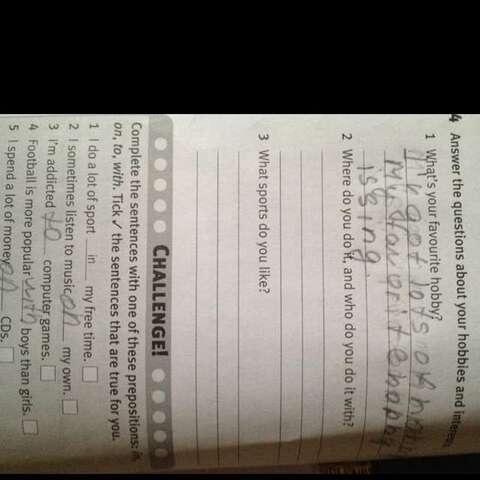 4 Answer the questions about your hobbies and interes
1 What's your favourite hobby?
I'v got lots of
My favorite
is sing.
2 Where do you do it, and who do you do it with?
3 What sports do you like?
CHALLENGE!
Complete the sentences with one of these prepositions: in,
on, to, with. Tick ✓ the sentences that are true for you.
1 I do a lot of sport in my free time.
2 I sometimes listen to music on my own.
3 I'm addicted to computer games.
4 Football is more popular with boys than girls.
5 I spend a lot of money on CDs.